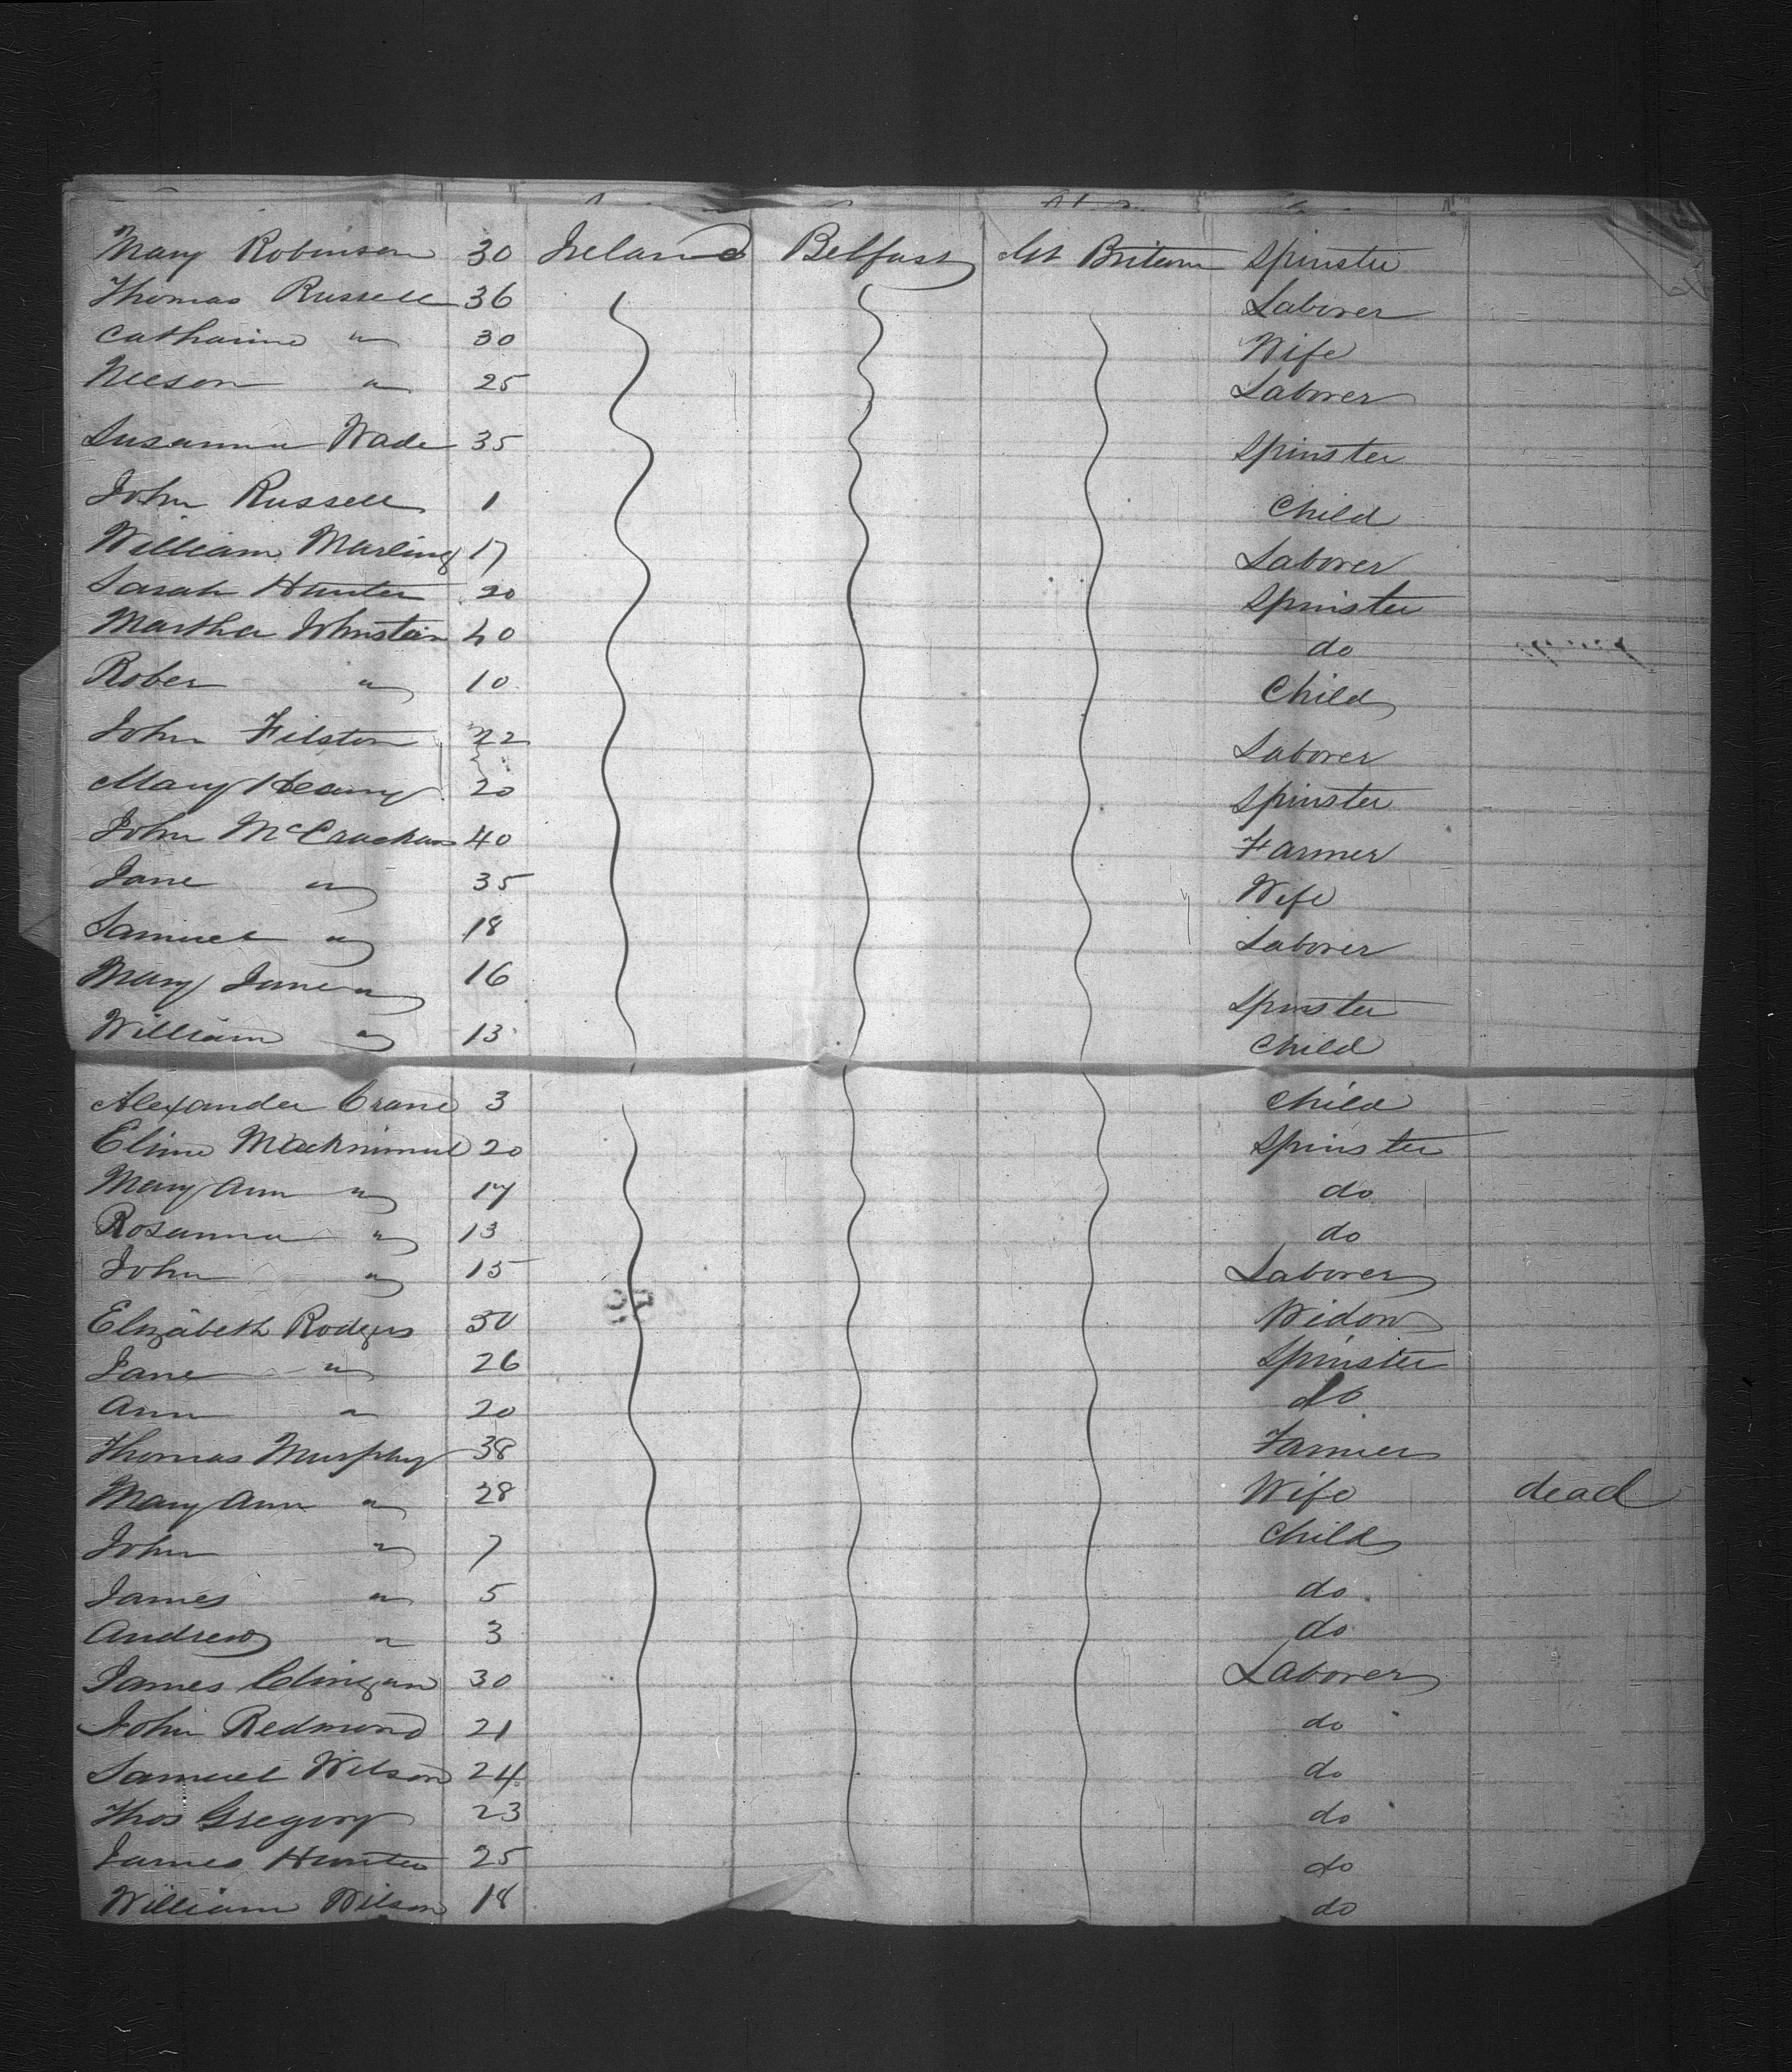 Mary Robinson 30 Ireland Belfast Gt Britain Spinster
Thomas Russell 36 Laborer
Catharine " 30 Wife
Neeson " 25 Laborer
Susanna Wade 35 Spinster
John Russell 1 Child
William Marling 17 Laborer
Sarah Hunter 20 Spinster
Martha Johnston 40 do
Rober " 10 Child
John Filston 22 Laborer
Mary 20 Spinster
John McCrackan 40 Farmer
Jane " 35 Wife
Samuel " 18 Laborer
Mary Jane " 16 Spinster
William " 13 Child
Alexander Crane 3 Child
20 Spinster
Mary Ann " 17 do
Rosanna " 13 do
John " 15 Laborer
Elizabeth Rodgers 50 Widow
Jane " 26 Spinster
Ann " 20 do
Thomas Murphy 38 Farmer
Mary Ann " 28 Wife dead
John " 7 Child
James " 5 do
Andrew " 3 do
James Clingan 30 Laborer
John Redmond 21 do
Samuel Wilson 24 do
Thos Gregory 23 do
James Hunter 25 do
William Wilson 18 do